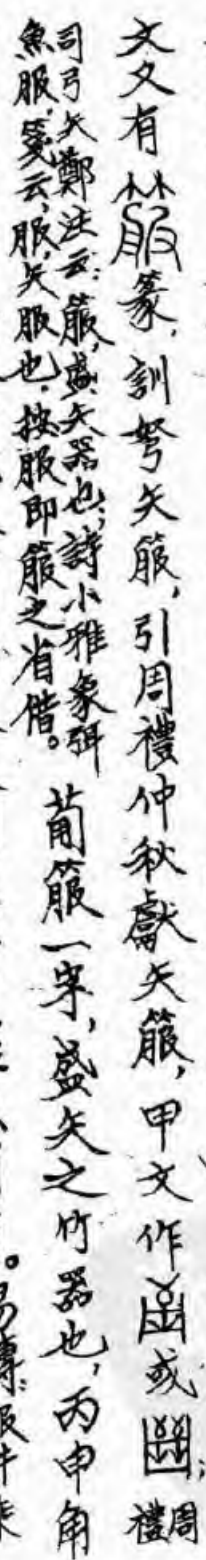 文又有篆，訓弩矢箙，引周禮仲秋獻矢箙，甲文作或；周禮
司弓矢鄭注云：箙，盛矢器也；詩小雅象弭
魚服，箋云，服，矢服也。按服即箙之省借。
葡箙一字，盛矢之竹器也，丙申角